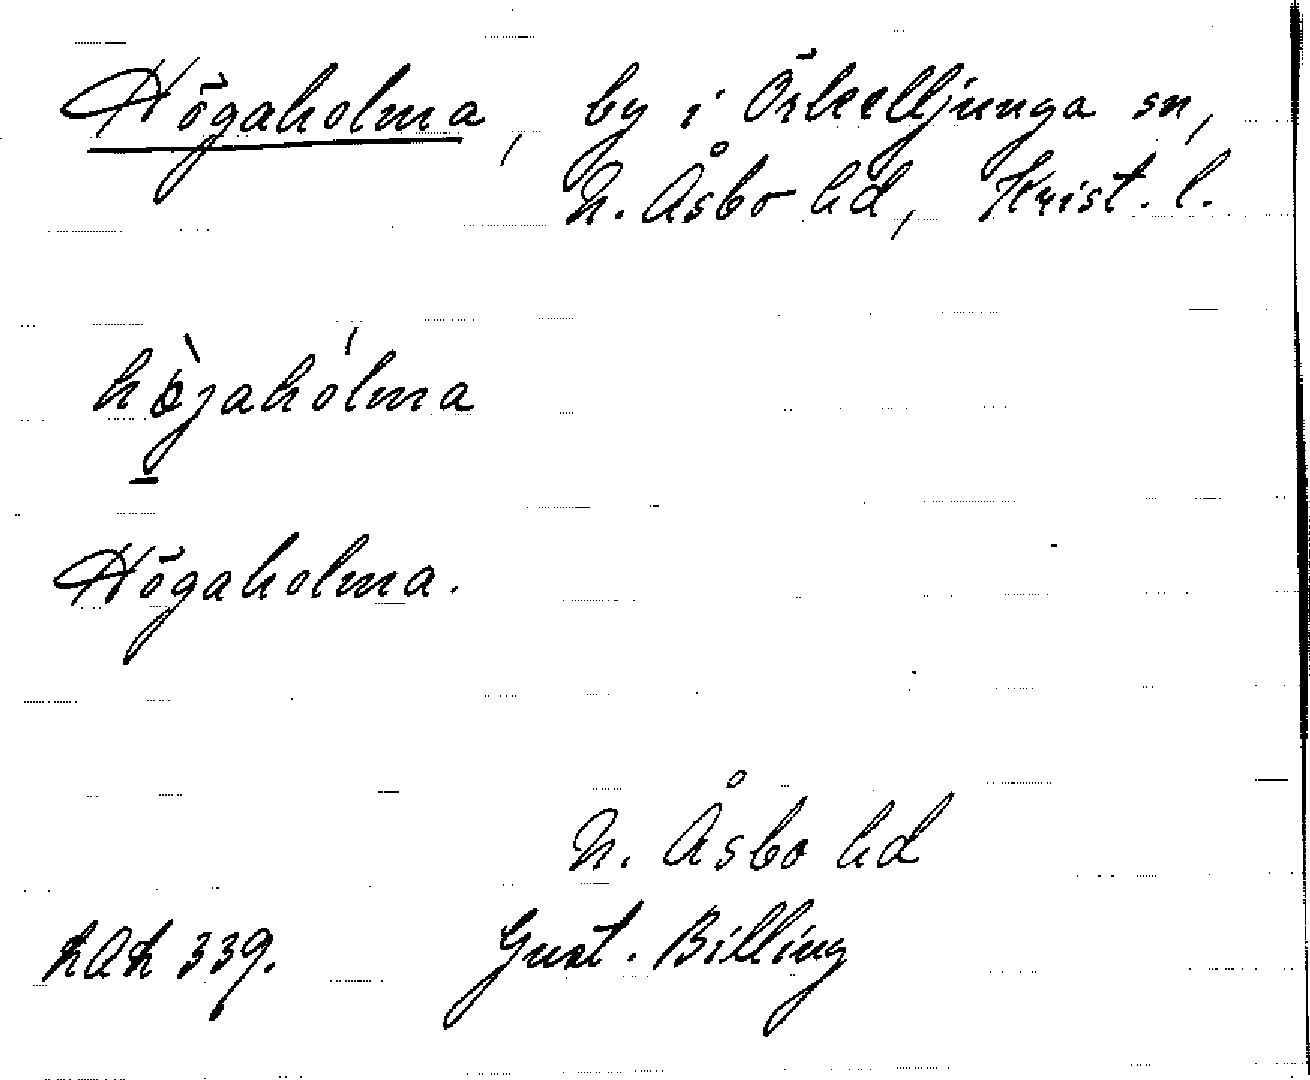 Högaholma, by i Örkelljunga sn,
N. Åsbo hd, Krist. l.
högahólma
Högaholma.
N. Åsbo hd
339. Gust. Billing